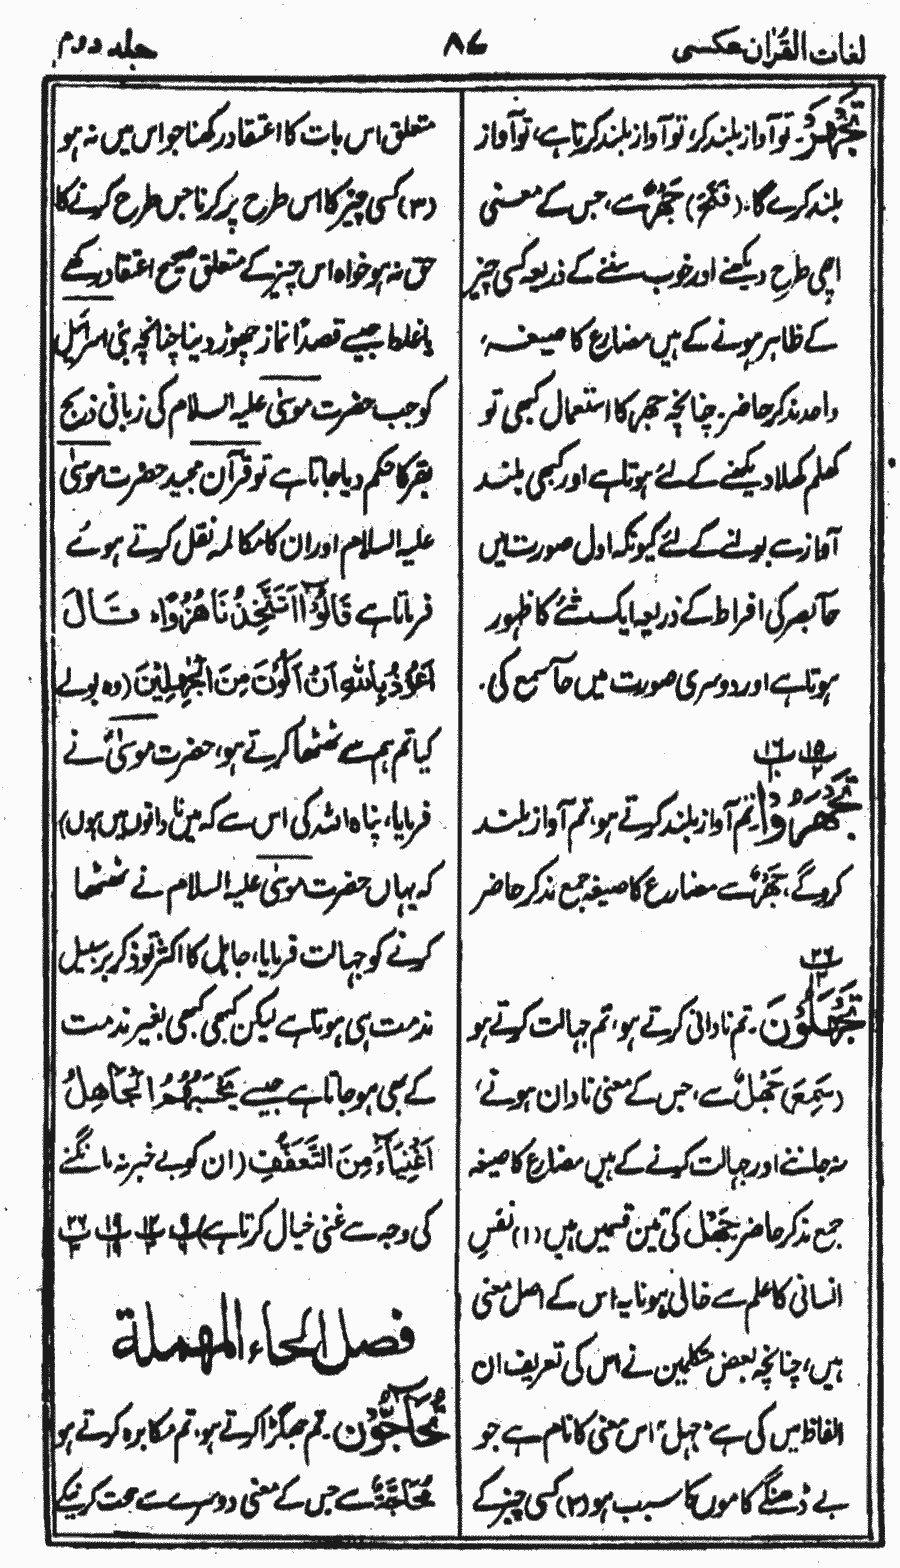 لغات القرآن عکسی
۸۷
جلد دوم
تَجْهَرْ۔ تو آواز بلند کرے، تو آواز بلند کرتا ہے، تو آواز
بلند کرے گا۔ (فَتَحَ) جَهْرٌ سے، جس کے معنی
اچھی طرح دیکھنے اور خوب سننے کے ذریعہ کسی چیز
کے ظاہر ہونے کے ہیں مضارع کا صیغہ،
واحد مذکر حاضر۔ چنانچہ جہر کا استعمال کبھی تو
کھلم کھلا دیکھنے کے لئے ہوتا ہے اور کبھی بلند
آواز سے بولنے کے لئے کیونکہ اول صورت میں
حاسۂ بصر کی افراط کے ذریعہ ایک شئے کا ظہور
ہوتا ہے اور دوسری صورت میں حاسۂ سمع کی۔
۱۵ ۱۶
تَجْهَرُوْا۔ تم آواز بلند کرتے ہو، تم آواز بلند
کروگے، جَهْرٌ سے مضارع کا صیغہ جمع مذکر حاضر
۲۶
تَجْهَلُوْنَ۔ تم نادانی کرتے ہو، تم جہالت کرتے ہو
(سَمِعَ) جَهْلٌ سے، جس کے معنی نادان ہونے،
نہ جاننے اور جہالت کرنے کے ہیں مضارع کا صیغہ
جمع مذکر حاضر جَهْل کی تین قسمیں ہیں (۱) نفسِ
انسانی کا علم سے خالی ہونا یہ اس کے اصل معنی
ہیں، چنانچہ بعض متکلمین نے اس کی تعریف ان
الفاظ میں کی ہے "جہل" اس معنی کا نام ہے جو
بے ڈھنگے کاموں کا سبب ہو (۲) کسی چیز کے
متعلق اس بات کا اعتقاد رکھنا جو اس میں نہ ہو
(۳) کسی چیز کا اس طرح پر کرنا جس طرح کرنے کا
حق نہ ہو خواہ اس چیز کے متعلق صحیح اعتقاد رکھے
یا غلط جیسے قصداً نماز چھوڑ دینا چنانچہ بنی اسرائیل
کو جب حضرت موسیٰ علیہ السلام کی زبانی ذبح
بقر کا حکم دیا جاتا ہے تو قرآن مجید حضرت موسیٰ
علیہ السلام اور ان کا مکالمہ نقل کرتے ہوئے
فرماتا ہے قَالُوْٓا اَتَتَّخِذُنَا هُزُوًا، قَالَ
اَعُوْذُ بِاللّٰهِ اَنْ اَكُوْنَ مِنَ الْجٰهِلِيْنَ (وہ بولے
کیا تم ہم سے ٹھٹھا کرتے ہو، حضرت موسیٰؑ نے
فرمایا، پناہ اللہ کی اس سے کہ میں نادانوں میں ہوں)
کہ یہاں حضرت موسیٰ علیہ السلام نے ٹھٹھا
کرنے کو جہالت فرمایا، جاہل کا اکثر تو ذکر بر سبیل
مذمت ہی ہوتا ہے لیکن کبھی کبھی بغیر مذمت
کے بھی ہو جاتا ہے جیسے يَحْسَبُهُمُ الْجَاهِلُ
اَغْنِيَآءَ مِنَ التَّعَفُّفِ (ان کو بے خبر نہ مانگنے
کی وجہ سے غنی خیال کرتا ہے)
فصل الحاء المهملة
تُحَآجُّوْنَ۔ تم جھگڑا کرتے ہو، تم مکابرہ کرتے ہو
مُحَآجَّةٌ سے جس کے معنی دوسرے سے حجت کرنیکے